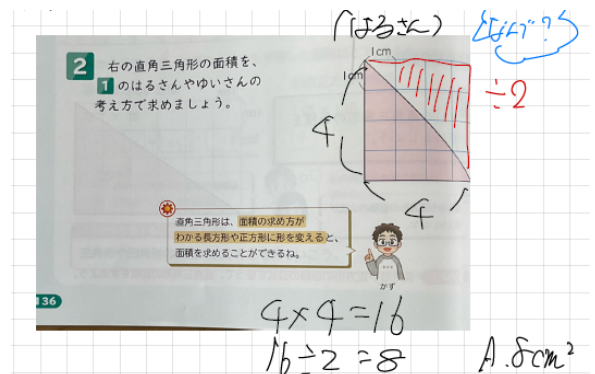 (はるさん)
(なんで?)
2 右の直角三角形の面積を、
1 のはるさんやゆいさんの
考え方で求めましょう。
1cm
1cm
÷2
4
4
直角三角形は、面積の求め方が
わかる長方形や正方形に形を変えると、
面積を求めることができるね。
かず
136
4×4=16
16÷2=8
A.8cm²